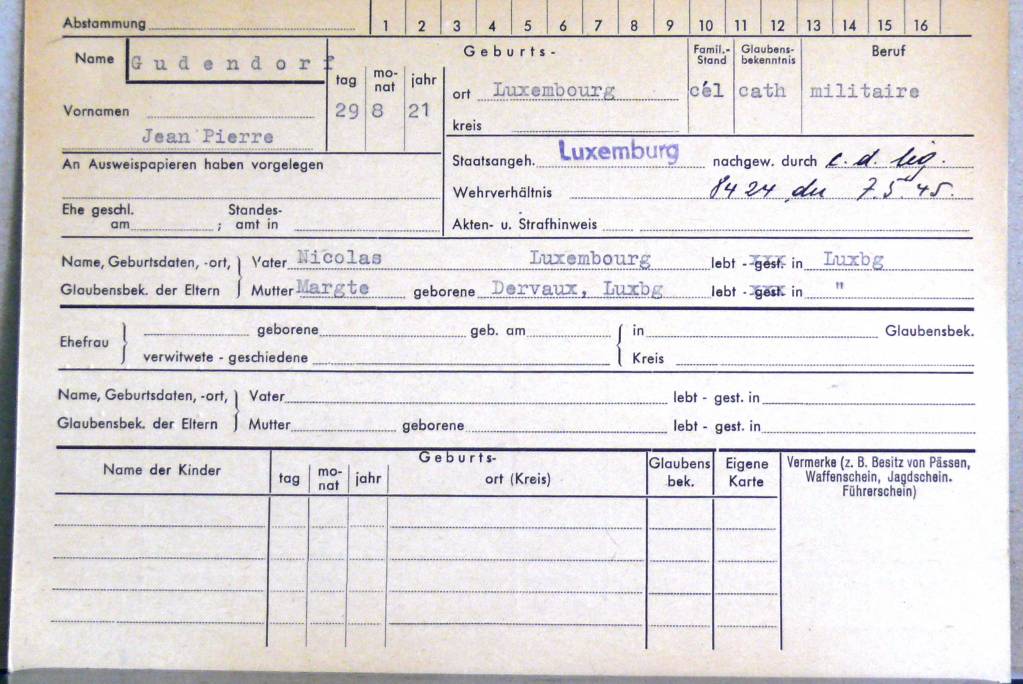 Abstammung 1 2 3 4 5 6 7 8 9 10 11 12 13 14 15 16
Name Gudendorf
Geburts-
tag monat jahr
29 8 21
ort Luxembourg
kreis
Famil.-Stand
cél
Glaubensbekenntnis
cath
Beruf
militaire
Vornamen
Jean Pierre
An Ausweispapieren haben vorgelegen
Staatsangeh. Luxemburg nachgew. durch c. d. lig.
Wehrverhältnis 8424 du 7.5.45.
Ehe geschl. am ; Standesamt in
Akten- u. Strafhinweis
Name, Geburtsdaten, -ort, Vater Nicolas Luxembourg lebt - gest. in Luxbg
Glaubensbek. der Eltern Mutter Margte geborene Dervaux, Luxbg lebt - gest. in "
Ehefrau geborene geb. am in Glaubensbek.
verwitwete - geschiedene Kreis
Name, Geburtsdaten, -ort, Vater lebt - gest. in
Glaubensbek. der Eltern Mutter geborene lebt - gest. in
Name der Kinder
Geburts-
tag monat jahr ort (Kreis)
Glaubens bek.
Eigene Karte
Vermerke (z. B. Besitz von Pässen,
Waffenschein, Jagdschein.
Führerschein)